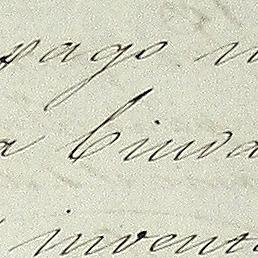 pago
a Ciuda
invent